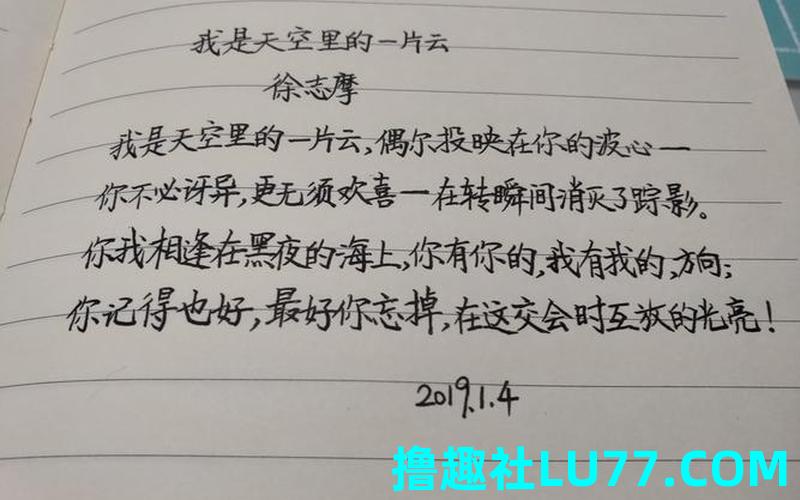 我是天空里的一片云
徐志摩
我是天空里的一片云,偶尔投映在你的波心一
你不必讶异,更无须欢喜一在转瞬间消灭了踪影。
你我相逢在黑夜的海上,你有你的,我有我的,方向;
你记得也好,最好你忘掉,在这交会时互放的光亮!
2019.1.4
撸趣社LU77.COM